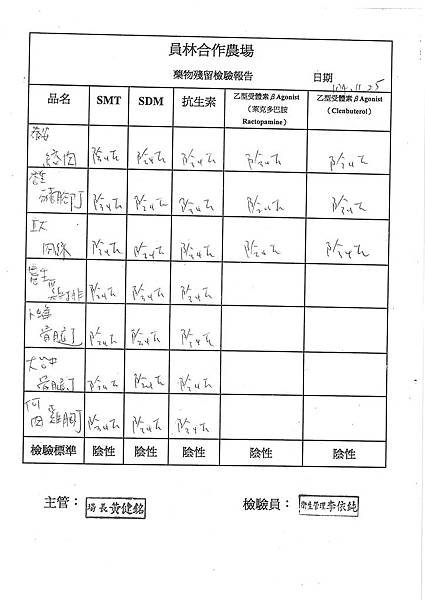 員林合作農場
藥物殘留檢驗報告
日期 104.11.25
品名 SMT SDM 抗生素 乙型受體素βAgonist (萊克多巴胺 Ractopamine) 乙型受體素βAgonist (Clenbuterol)
絞肉 陰性 陰性 陰性 陰性 陰性
陰性 陰性 陰性 陰性 陰性
肉絲 陰性 陰性 陰性 陰性 陰性
陰性 陰性 陰性
骨腿丁 陰性 陰性 陰性
骨腿丁 陰性 陰性 陰性
雞胸丁 陰性 陰性 陰性
檢驗標準 陰性 陰性 陰性 陰性 陰性
主管: 場長黃健銘 檢驗員: 衛生管理李依純